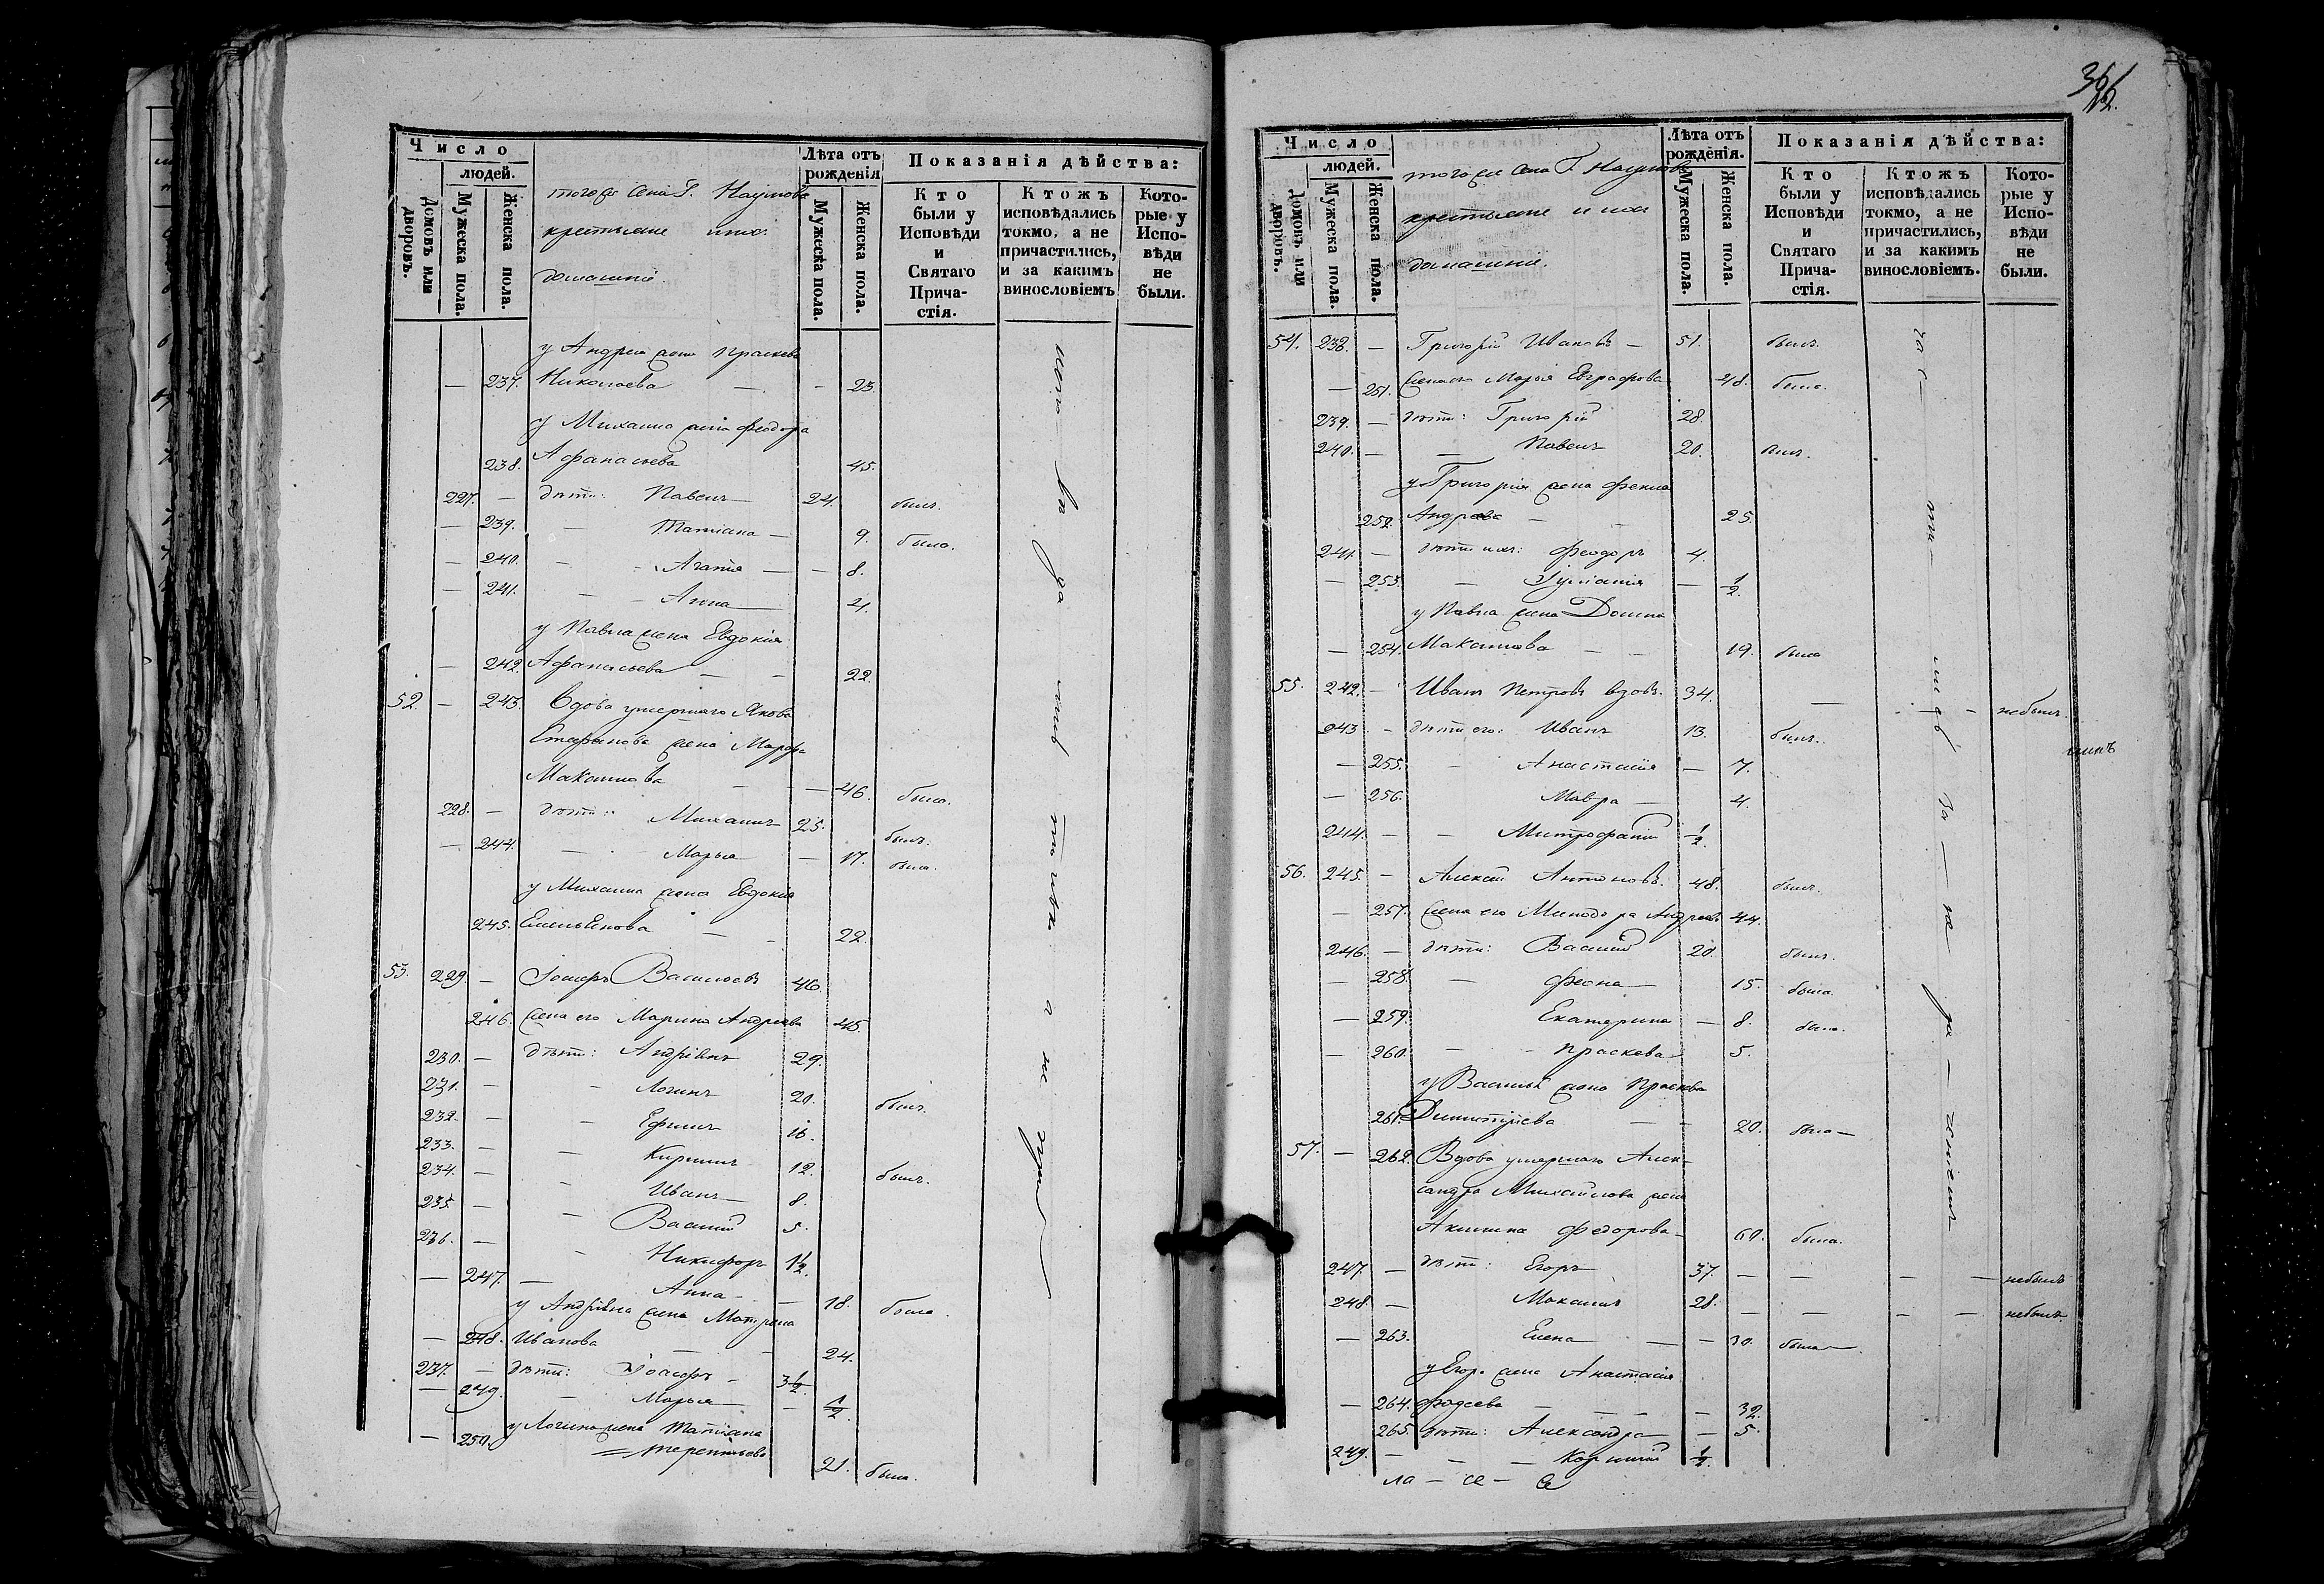 Число
людей.
Домовъ или дворовъ.
Мужеска пола.
Женска пола.
тогоже села Г. Наумова
крестьяне и ихъ
домашніе.
Лѣта отъ рожденія
Мужеска пола.
Женска пола.
Показанія дѣйства:
Кто были у Исповѣди и Святаго Причастія.
Ктожъ исповѣдались токмо, а не причастились, и за какимъ винословіемъ
Которые у Исповѣди не были.
у Андрея жена Праскева
— 237. Николаева — — 23.
у Михаила жена Феодора
238. Афанасьева 45.
227. — дѣти: Павелъ 24. былъ.
— 239. — Татіана — 9. была.
— 240. — Агапія — — 8.
— 241. — Анна — 4.
у Павла жена Евдокія
— 242. Афанасьева — — 22.
52. — 243. Вдова умершаго Якова
жена Марфа
Максимова — — 46. была.
228. — дѣти: Михаилъ 25. былъ.
— 244. — Марья — 17. была.
у Михаила жена Евдокія
245. Емельянова — — 22.
53. 229. — Іосифъ Васильевъ 46.
246. Жена его Марина Андреева 45.
230. — дѣти: Андріянъ 29.
231. — — Логинъ 20. былъ.
232. — — Ефимъ 16.
233. — — Кирилъ 12. былъ.
234. — — Иванъ — 8.
235. — — Василій 5.
236. — — Никифоръ 1½.
— 247. — Анна — — 18. была.
у Андріяна жена Матрена
— 248. Иванова — — 24.
237. — дѣти: Іосифъ — 3½.
— 249. — Марья — — ½.
у Логина жена Татіана
— 250. Терентьева 21. была.
Число
людей.
Домовъ или дворовъ.
Мужеска пола.
Женска пола.
тогоже села Г. Наумова
крестьяне и ихъ
домашніе.
Лѣта отъ рожденія.
Мужеска пола.
Женска пола.
Показанія дѣйства:
Кто были у Исповѣди и Святаго Причастія.
Ктожъ исповѣдались токмо, а не причастились, и за какимъ винословіемъ.
Которые у Исповѣди не были.
54. 238. — Григорій Ивановъ — 51. былъ.
— 251. Жена его Марья Евграфова 48. была.
239. — дѣти: Григорій 28.
240. — — Павелъ 20. былъ.
у Григорія жена Фекла
252. Андреева — — 25.
241. — дѣти ихъ: Феодоръ 4.
— 253. — Іуліанія — ½.
у Павла жена Домна
— 254. Максимова — — 19. была
55. 242. — Иванъ Петровъ вдовъ. 34. — — небылъ.
243. — дѣти его: Иванъ 13. былъ.
— 255. — Анастасія — 7.
— 256. Мавра — 4.
244. — — Митрофаній ½.
56. 245. — Алексей Антоновъ. 48. былъ.
— 257. Жена его Минодора Андреев. 44.
246. — дѣти: Василій 20. былъ.
— 258. — Фекла — 15. была.
— 259. Екатерина — 8. была.
— 260. — — Праскева 5.
у Василья жена Праскева
261. Димитріева — — 20. была —
57. — 262. Вдова умершаго Алек-
сандра Михайлова жена
Акилина Федорова — 60. была.
247. — дѣти: Егоръ 37. — — — — небылъ
248. — Максимъ 28. — — — — небылъ
— 263. Елена — — 30. была —
у Егора жена Анастасія
— 264. Фадеева — — — — 32.
265. дѣти: Александра — — 5.
249. — — — Корнилій ½.